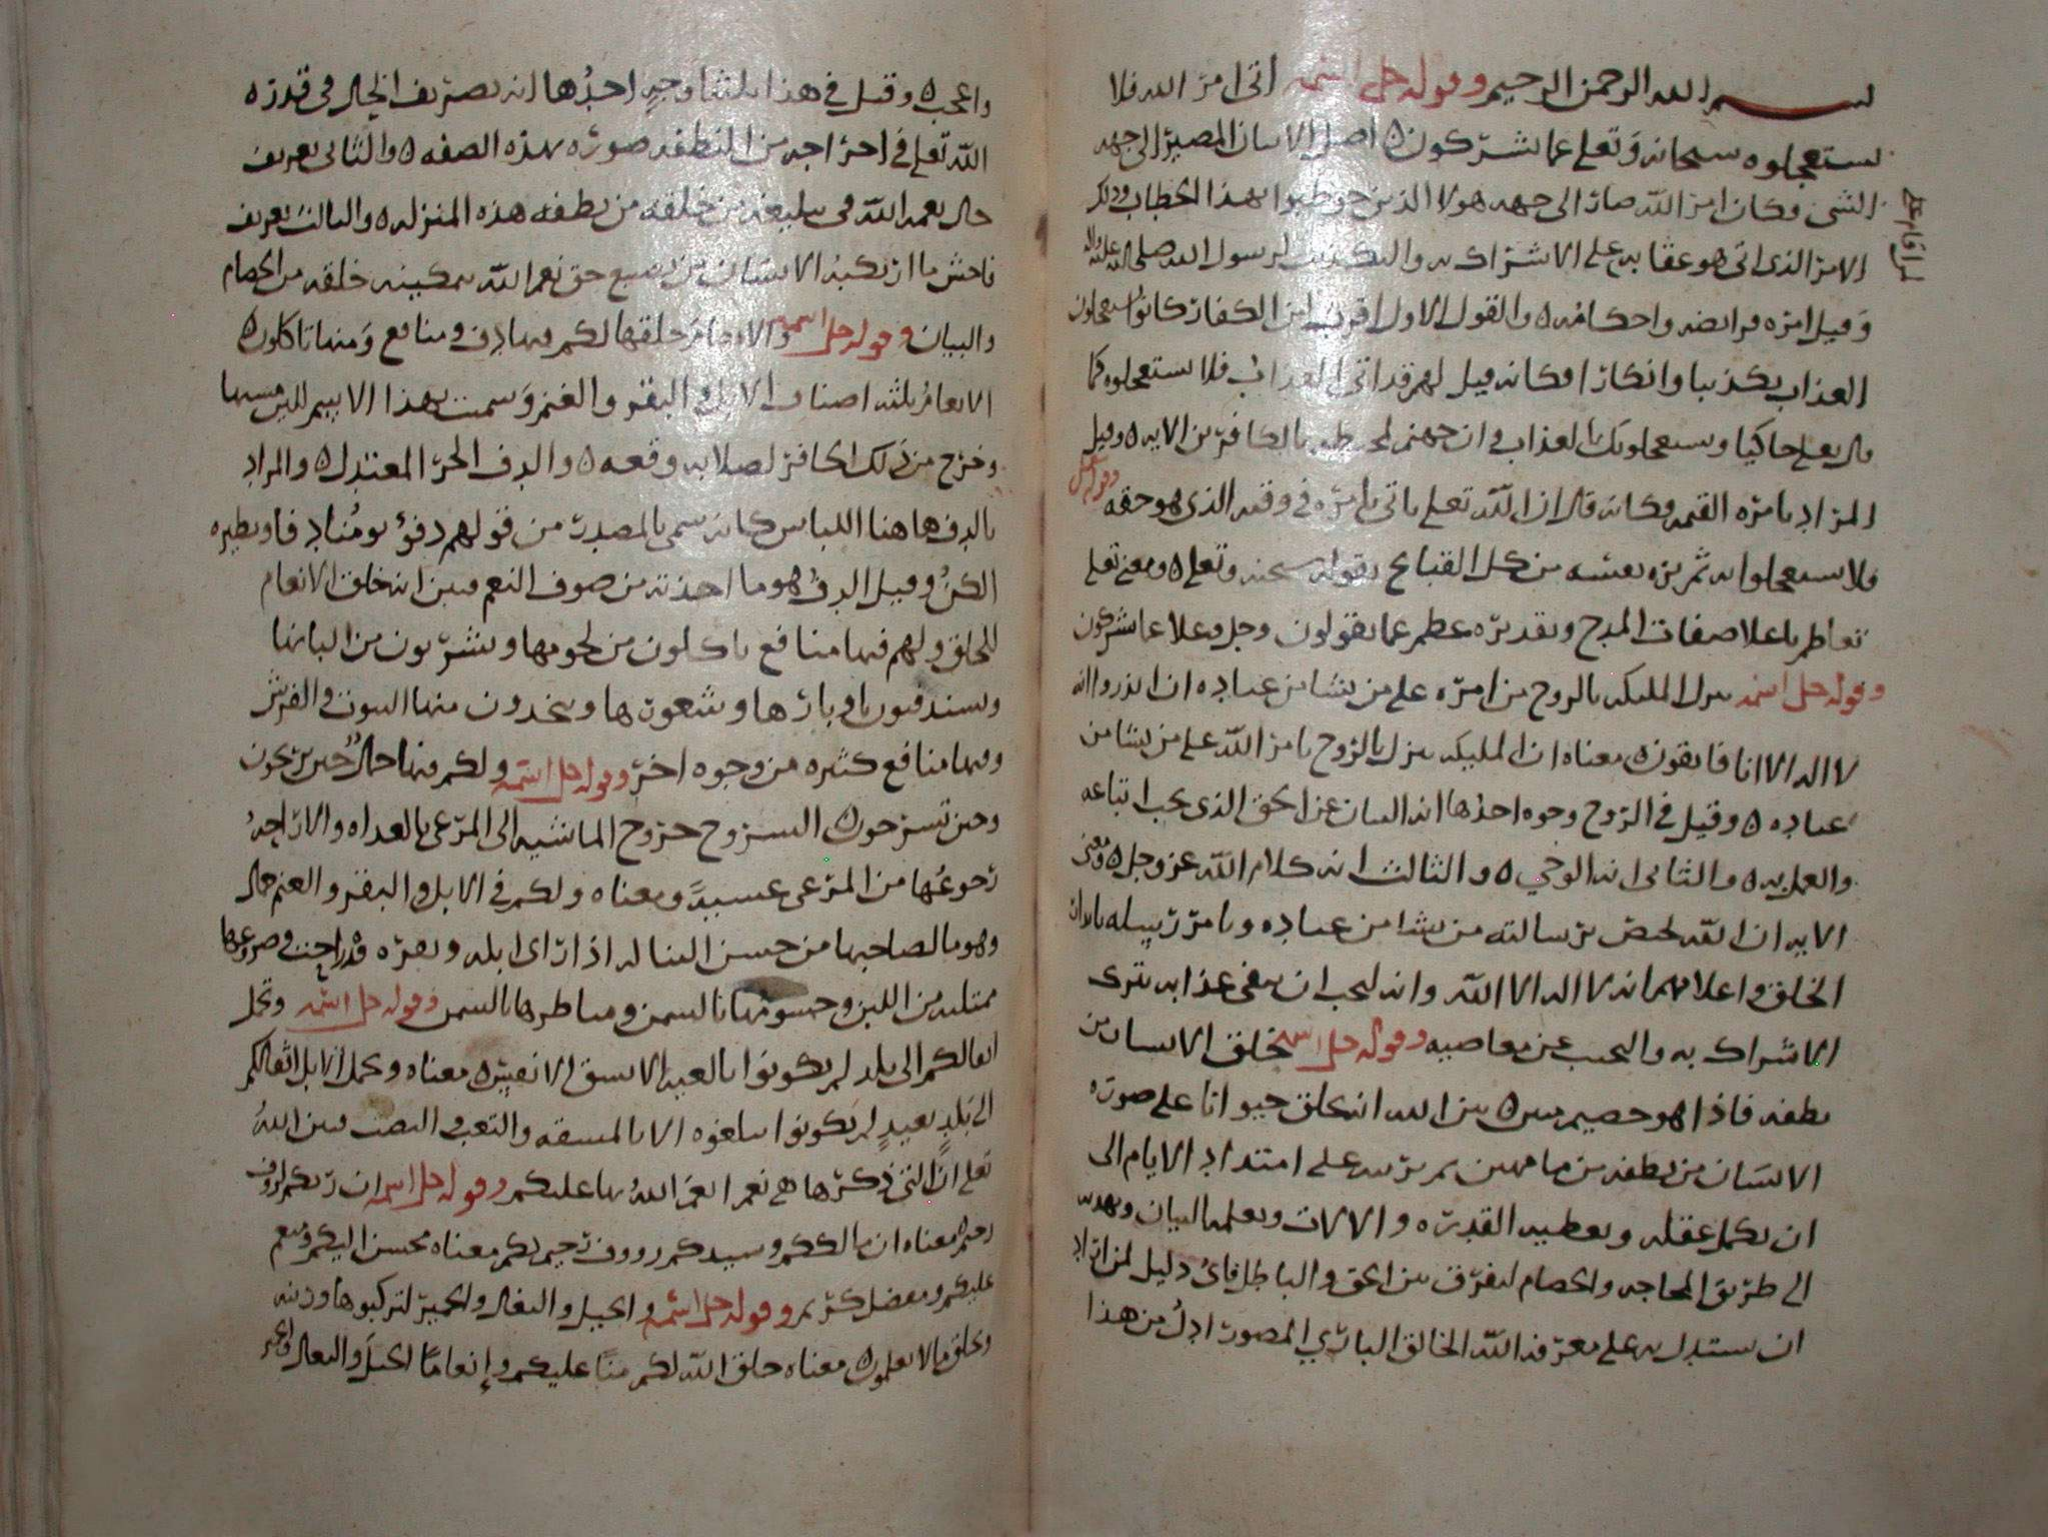 بسم الله الرحمن الرحيم وقوله جل اسمه اتى امر الله فلا
تستعجلوه سبحانه وتعلى عما يشركون ه اصل الاتيان المصير الى جهه
الشى وكان امر الله صار الى جهه هولا الذين خوطبوا بهذا الخطاب وذلك
الامر الذى اتى هو عقابه على الاشراك به والتكذيب لرسول الله صلى الله عليه واله
وقيل امره فرايضه واحكامه ه والقول الاول اقرب لان الكفار كانوا يستعجلون
العذاب تكذيبا وانكارا فكانه قيل لهم قد اتى العذاب فلا تستعجلوه كما
قال تعلى حاكيا ويستعجلونك بالعذاب وان جهنم لمحيطه بالكافرين الايه ه وقيل
المراد بامره القيمه وكانه قال ان الله تعلى ياتى بامره فى وقته الذى هو حقه
وقوله تعلى
فلا تستعجلوا به ثم نزه نفسه من كل القبايح بقوله سبحنه وتعلى ه ومعنى تعلى
تعاظم باعلا صفات المدح وتقديره عظم عما يقولون وجل وعلا عما يشركون
وقوله جل اسمه ينزل المليكه بالروح من امره على من يشا من عباده ان انذروا انه
لا اله الا انا فاتقون ه معناه ان المليكه ينزل بالروح بامر الله على من يشا من
عباده ه وقيل فى الروح وجوه احدها انه البيان عن الحق الذى يجب اتباعه
والعمل به ه والثانى انه الوحي ه والثالث انه كلام الله عز وجل ه ومعنى
الايه ان الله يختص برسالته من يشا من عباده ويامر رسله بانذار
الخلق واعلامهم انه لا اله الا الله وانه يجب ان يتقى عذابه بترك
الاشراك به والتجنب عن معاصيه وقوله جل اسمه خلق الانسان من
نطفه فاذا هو خصيم مبين ه بين الله انه خلق حيوانا على صوره
الانسان من نطفه من ما مهين ثم يربيه على امتداد الايام الى
ان يكمل عقله ويعطيه القدره والالات ويعلمه البيان ويهديه
الى طريق المحاجه والخصام ليفرق بين الحق والباطل فاى دليل لمن اراد
ان يستدل به على معرفه الله الخالق الباري المصور ادل من هذا
واعجب ه وقيل فى هذا ثلثه اوجه احدها انه تصريف الحال فى قدره
الله تعلى فى اخراجه من النطفه صوره بهذه الصفه ه والثانى تعريف
حال نعمه الله فى تبليغه من خلقه من نطفه هذه المنزله ه والثالث تعريف
فاحش ما ارتكبه الانسان من تضييع حق نعم الله بتمكينه خلقه من الخصام
والبيان وقوله جل اسمه والانعام خلقها لكم فيها دف ومنافع ومنها تاكلون ه
الانعام ثلثه اصناف الابل والبقر والغنم وسميت بهذا الاسم للين مشيها
وخرج من ذلك الحافر لصلابه وقعه ه والدف الحر المعتدل ه والمراد
بالدف هاهنا اللباس كانه سمى بالمصدر من قولهم دفؤ يومنا دفا ونظيره
الكن وقيل الدف هو ما اخذته من صوف النعم فبين انه خلق الانعام
للخلق ولهم فيها منافع ياكلون من لحومها ويشربون من البانها
ويستدفيون باوبارها وشعورها ويتخذون منها البيوت والفرش
وفيها منافع كثيره من وجوه اخر وقوله جل اسمه ولكم فيها جمال حين تريحون
وحين تسرحون ه السروح خروح الماشيه الى المرعى بالغداه والاراحه
رجوعها من المرعى عشيا ومعناه ولكم فى الابل والبقر والغنم جمال
وهو ما لصاحبها من حسن الثنا له اذا راى ابله وبقره قد راحت وضروعها
ممتليه من اللبن وجسومها بالسمن وقوله جل اسمه وتحمل
اثقالكم الى بلد لم تكونوا بالغيه الا بشق الانفس ه معناه وتحمل الابل اثقالكم
الى بلد بعيد لم تكونوا بالغوه الا بالمشقه والتعب والنصب فبين الله
تعلى ان التى ذكرها هى نعم انعم الله بها عليكم وقوله جل اسمه ان ربكم لروف
رحيم معناه ان مالككم وسيدكم رووف رحيم بكم معناه محسن اليكم ومنعم
عليكم ومفضل كريم وقوله جل اسمه والخيل والبغال والحمير لتركبوها وزينه
ويخلق ما لا تعلمون ه معناه خلق الله لكم منا عليكم وإنعاما الخيل والبغال والحمير